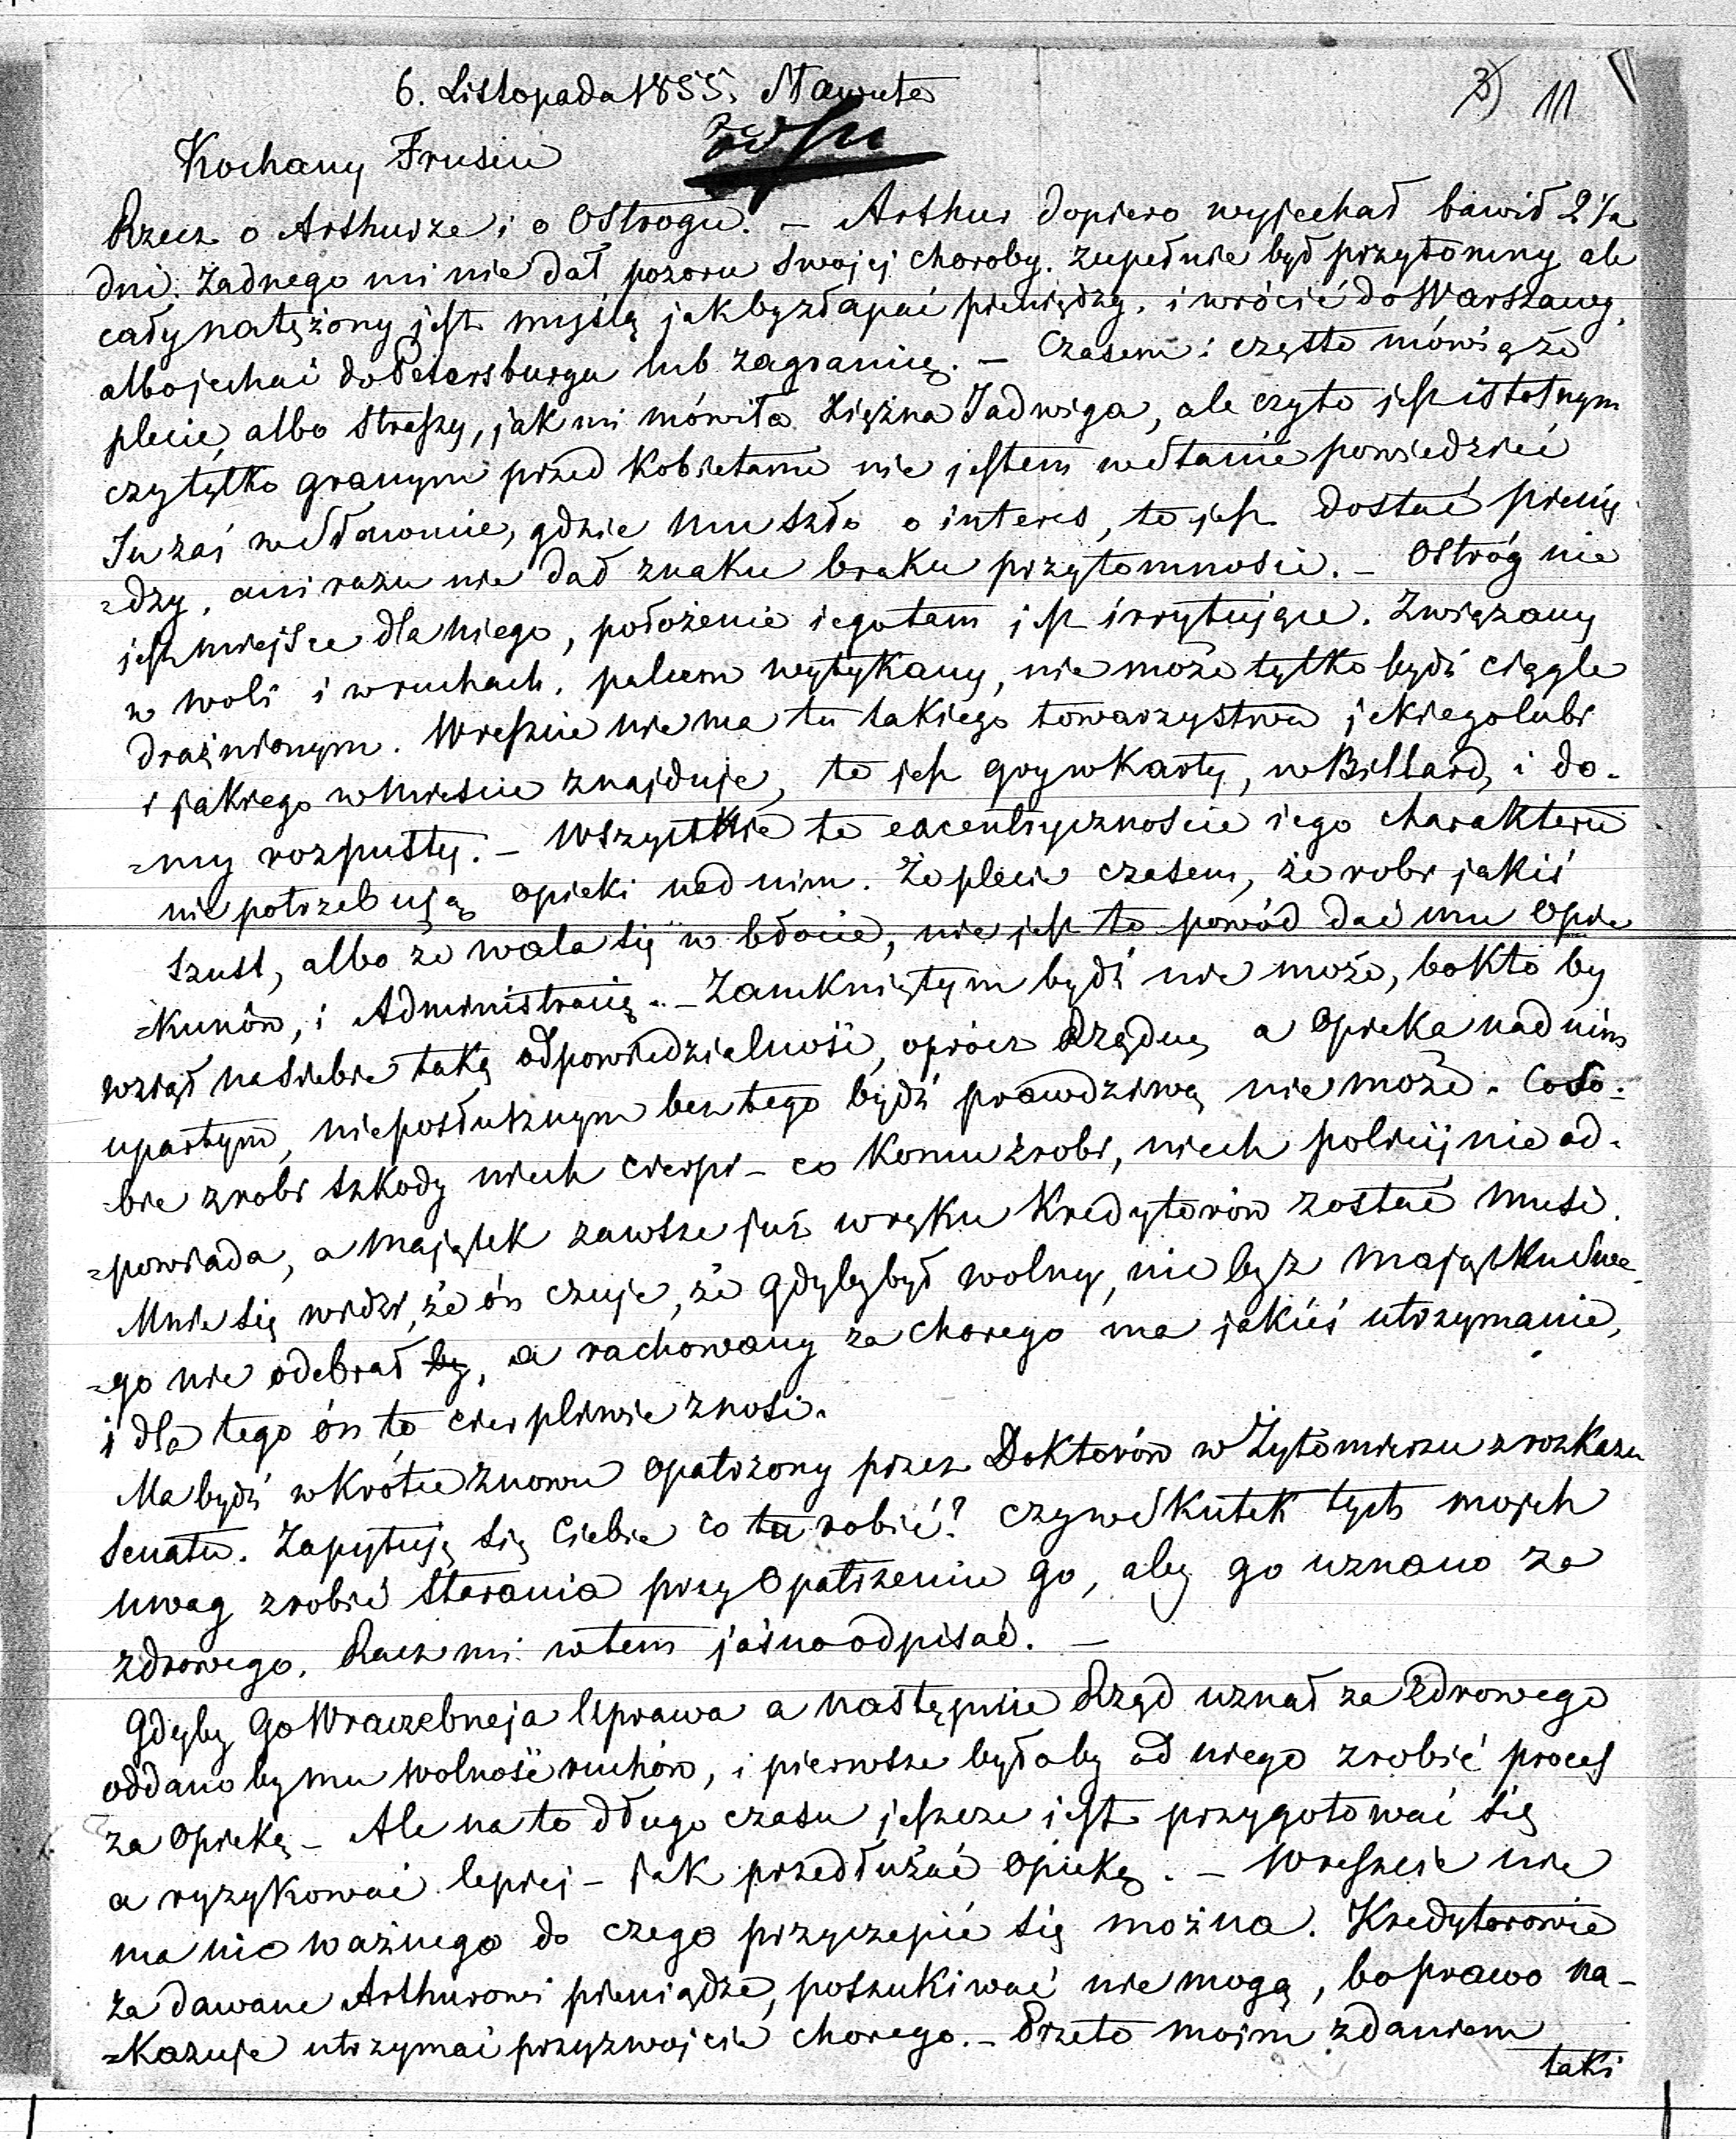 3) 11
6. Listopada 1855. Sławuta
Kochany Frusiu
Rzecz o Arthurze i o Ostrogu. – Arthur dopiero wyjechał bawił 2 1/2
dni. Żadnego mi nie dał pozoru swojej choroby. zupełnie był przytomny ale
cały natężony jest myślą jakby złapać pieniędzy. i wrócić do Warszawy,
albo jechać do Petersburga lub zagranicę. – Czasem i często mówią że
plecie, albo straszy, jak mi mówiła Xiężna Jadwiga, ale czy to jest istotnym
czy tylko granym przed Kobietami nie jestem w stanie powiedzieć
Tu zaś w Sławucie, gdzie mu szło o interes, to jest dostać pienię
=dzy, ani razu nie dał znaku braku przytomności. – Ostróg nie
jest miejsce dla niego, położenie iego tam jest irrytujące. Związany
w woli i w ruchach, palcem wytykany, nie może tylko bydź ciągle
drażnionym. Wreszcie nie ma tu takiego towarzystwa jakiego lubi
i jakiego w mieście znajduje, to jest gry w Karty, w Billard, i do-
=my rozpusty. – Wszystkie te excentryczności iego charakteru
nie potrzebują opieki nad nim. Że plecie czasem, że robi jakiś
szust, albo że wala się w błocie, nie jest to powód dać mu Opie
=Kunów, i Administracię. – Zamkniętym bydź nie może, bo Kto by
wziął na siebie taką odpowiedzialność, oprócz Rządu, a Opieka nad nim
upartym, nieposłusznym bez tego bydź prawdziwą nie może. Co so-
=bie zrobi szkody niech cierpi – co Komu zrobi, niech policij nie od-
=powiada, a majątek zawsze już w ręku Kredytorów zostać musi.
Mnie się widzi, że ón czuje, że gdyby był wolny, nic by z majątku swe
=go nie odebrał by, a rachowany za chorego ma jakieś utrzymanie,
i dla tego ón to cierpliwie znosi.
Ma bydź w Krótce znowu opatrzony przez Doktorów w Żytomierzu z rozkazu
Senatu. Zapytuję się Ciebie co tu robić? czy w skutek tych mojch
uwag zrobić starania przy Opatrzeniu go, aby go uznano za
zdrowego. Racz mi w tem jaśno odpisać. –
Gdyby go Wraczebneja Uprawa a następnie Rząd uznał za zdrowego
oddano by mu wolność ruchów, i pierwsze byłoby od niego zrobić proces
za Opiekę – Ale na to długo czasu jeszcze jest przygotować się
a ryzykować lepiej – jak przedłużać Opiekę. – Wreszcie nie
ma nic ważnego do czego przyczepić się można. Kredytorowie
za dawane Arthurowi pieniądze, poszukiwać nie mogą, bo prawo na-
=Kazuje utrzymać przyzwojcie chorego. – Przeto mojm zdaniem
taki